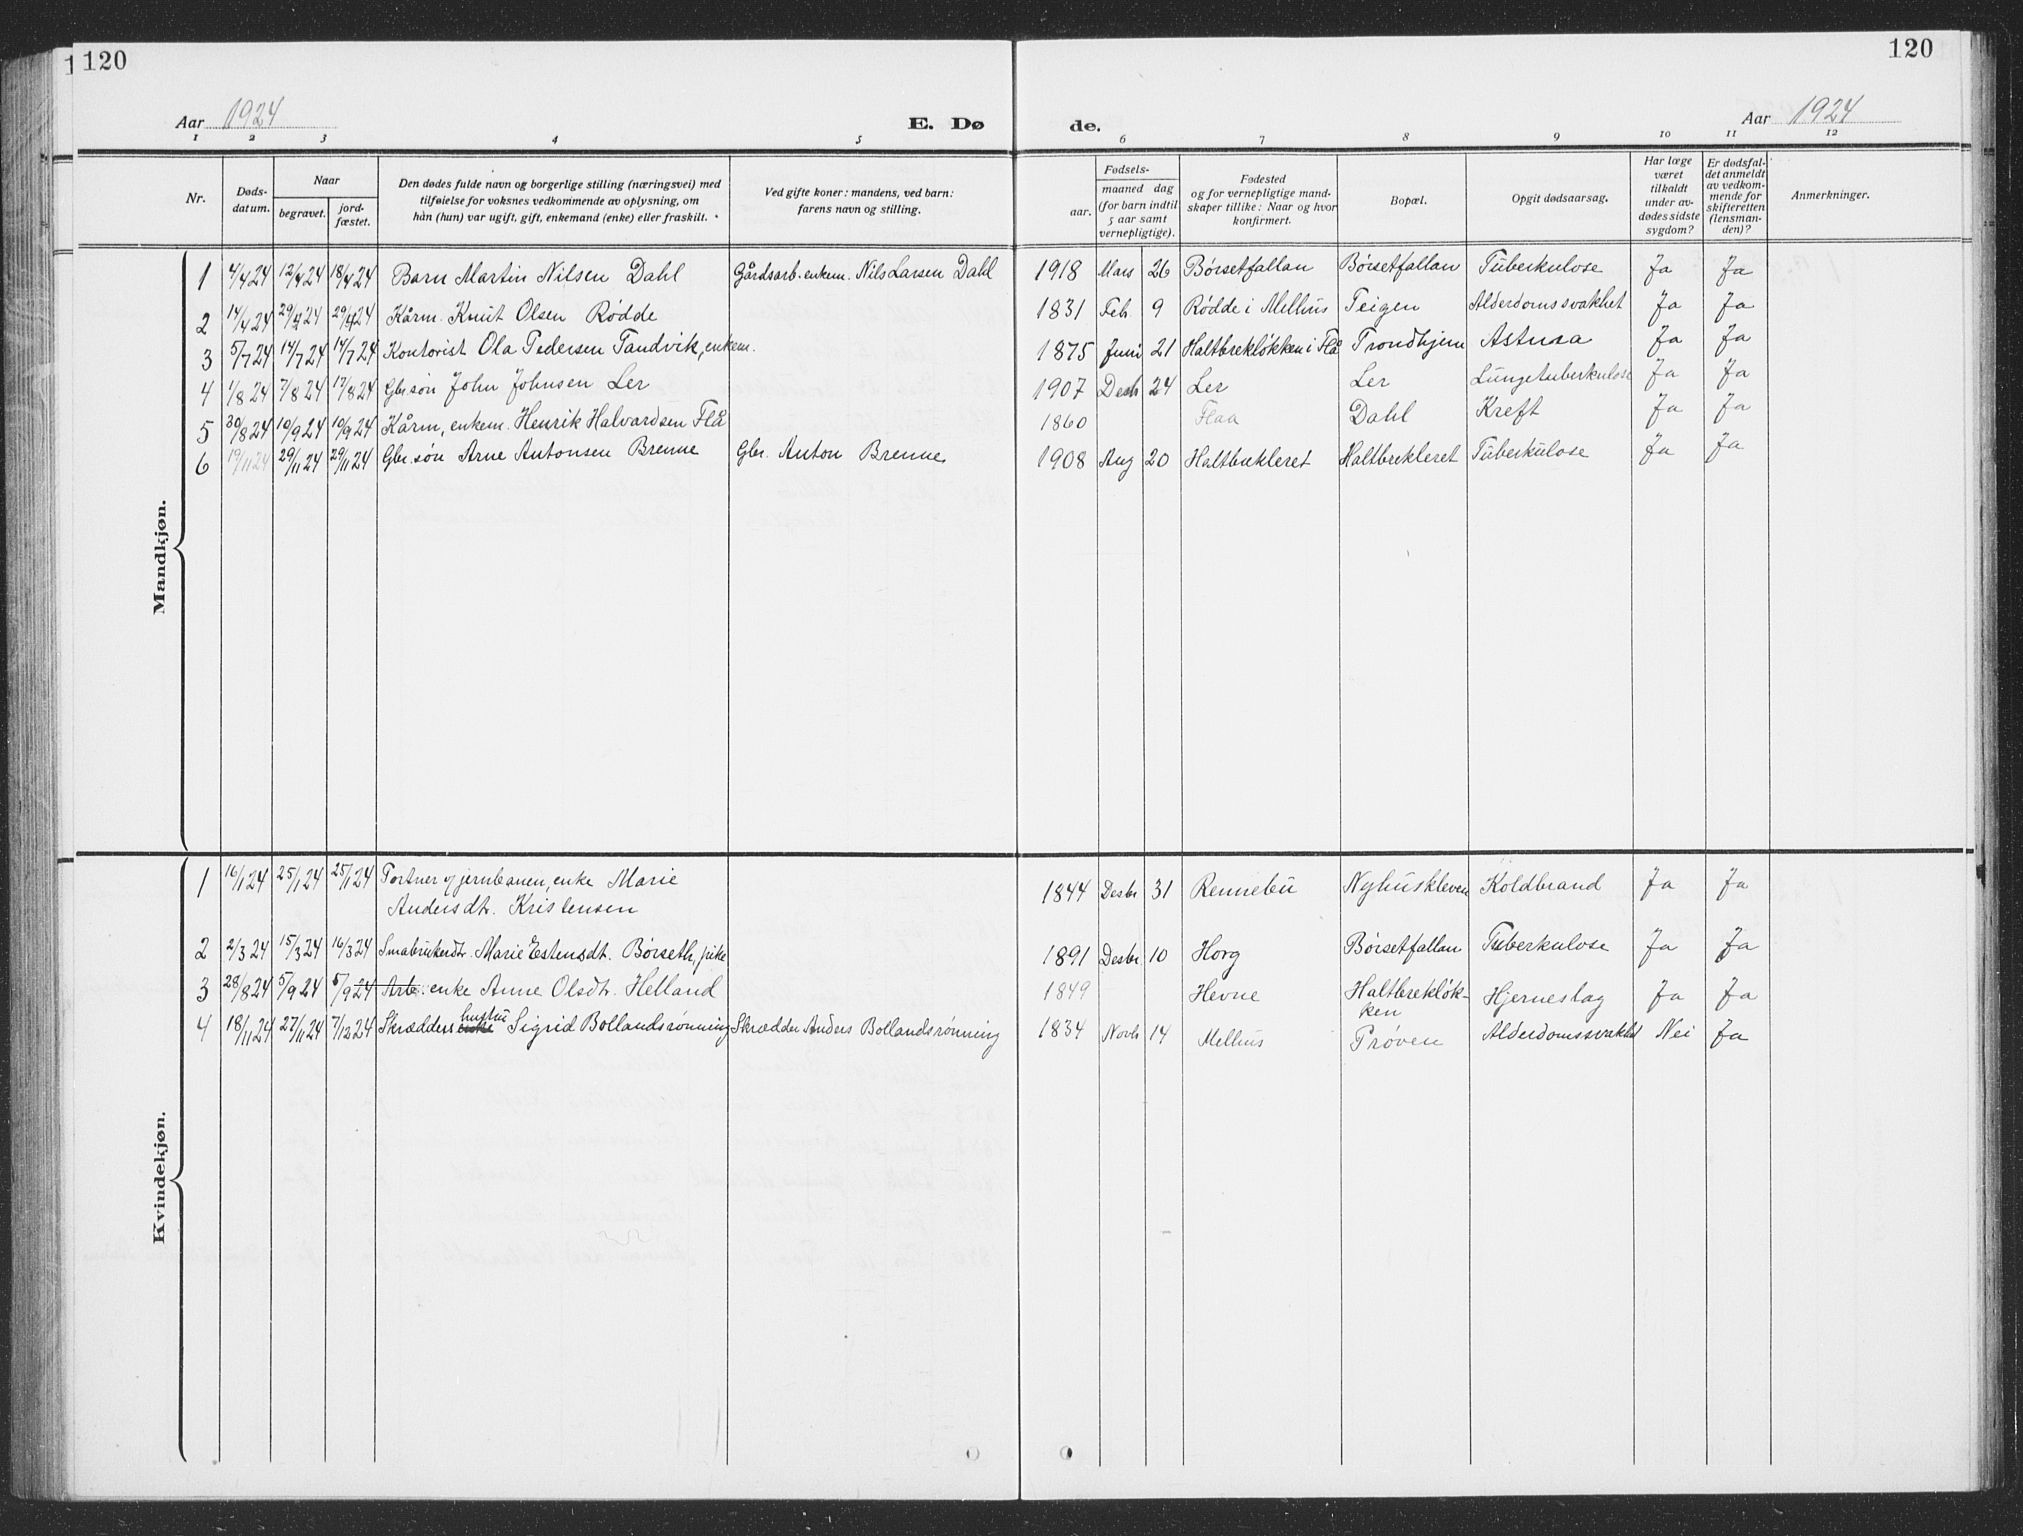 120
120
Aar 1924
E. Dø
de.
Aar 1924
1 2 3 4 5 6 7 8 9 10 11 12
Nr.
Døds-
datum.
Naar
begravet.
jord-
fæstet.
Den dødes fulde navn og borgerlige stilling (næringsvei) med
tilføielse for voksnes vedkommende av oplysning, om
han (hun) var ugift, gift, enkemand (enke) eller fraskilt.
Ved gifte koner: mandens, ved barn:
farens navn og stilling.
Fødsels-
aar.
maaned dag
(for barn indtil
5 aar samt
vernepligtige).
Fødested
og for vernepligtige mand-
skaper tillike: Naar og hvor
konfirmert.
Bopæl.
Opgit dødsaarsag.
Har læge
været
tilkaldt
under av-
dødes sidste
sygdom?
Er dødsfal-
det anmeldt
av vedkom-
mende for
skifteretten
(lensman-
den)?
Anmerkninger.
Mandkjøn.
1 4/4 24 12/4 24 18/4 24 Barn Martin Nilsen Dahl Gårdsarb. enkem. Nils Larsen Dahl 1918 Mars 26 Børsetfallan Børsetfallan Tuberkulose Ja Ja
2 14/4 24 29/4 24 29/4 24 Kårm. Knut Olsen Rødde 1831 Feb. 9 Rødde i Melhus Teigen Alderdomssvakhet Ja Ja
3 5/7 24 14/7 24 14/7 24 Kontorist Ola Pedersen Tandvik, enkem. 1875 Juni 21 Haltbrekløkken i Flå Trondhjem Astma Ja Ja
4 1/8 24 7/8 24 17/8 24 Gbr. søn John Johnsen Ler 1907 Desb 24 Ler Ler Lungetuberkulose Ja Ja
5 30/8 24 10/9 24 10/9 24 Kårm, enkem. Henrik Halvardsen Flå 1860 Flaa Dahl Kreft Ja Ja
6 19/11 24 29/11 24 29/11 24 Gbr. søn Arne Antonsen Brenne Gbr. Anton Brenne 1908 Aug 20 Haltbrekleret Haltbrekleret Tuberkulose Ja Ja
Kvindekjøn.
1 16/1 24 25/1 24 25/1 24 Portner v/ jernbanen, enke Marie 1844 Desbr 31 Rennebu Nyhuskleven Koldbrand Ja Ja
Andersdtr. Kristensen
2 2/3 24 15/3 24 16/3 24 Småbrukerdtr. Marie Estensdt. Børseth, pike 1891 Desbr 10 Horg Børsetfallan Tuberkulose Ja Ja
3 28/8 24 5/9 24 5/9 24 Arb. enke Anne Olsdtr. Helland 1849 Hevne Haltbrekløk-
ken Hjerneslag Ja Ja
hustru
4 18/11 24 27/11 24 7/12 24 Skrædders enke Sigrid Bollandsrønning Skrædder Anders Bollandsrønning 1834 Novb 14 Melhus Prøven Alderdomssvakhet Nei Ja